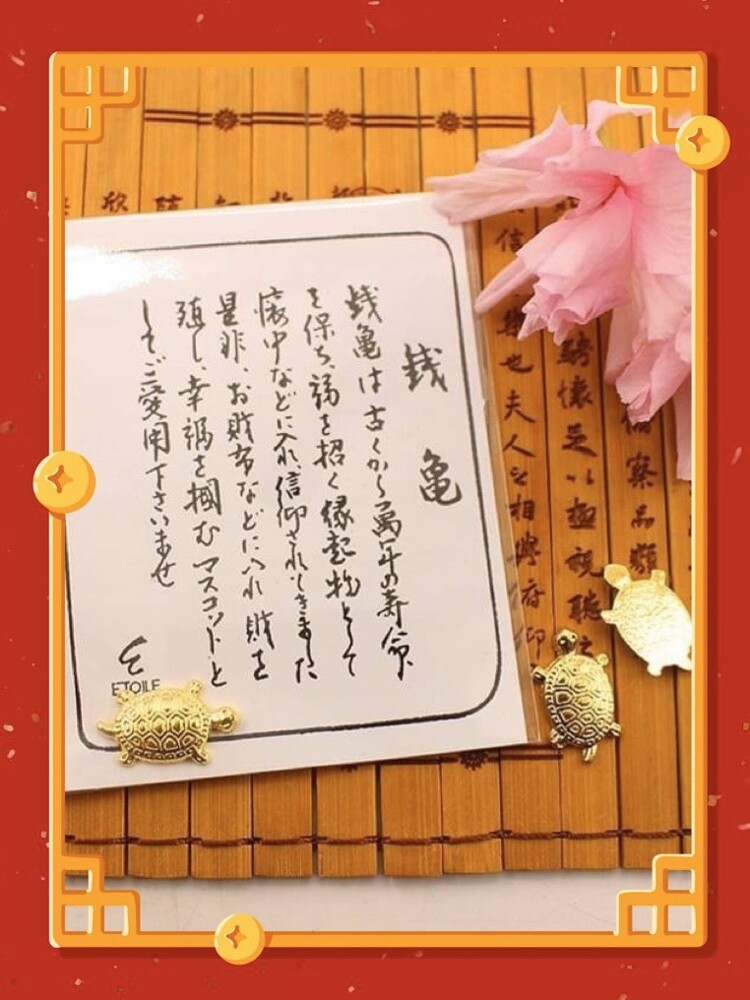 銭亀
銭亀は古くから萬年の寿命
を保ち、福を招く縁起物として
懐中などに入れ、信仰されてきました
是非、お財布などに入れ財を
殖し、幸福を掴むマスコットと
してご愛用下さいませ
ETOILE
察品類
騁懷足以極視聽之
信
樂也夫人之相與俯仰
欣